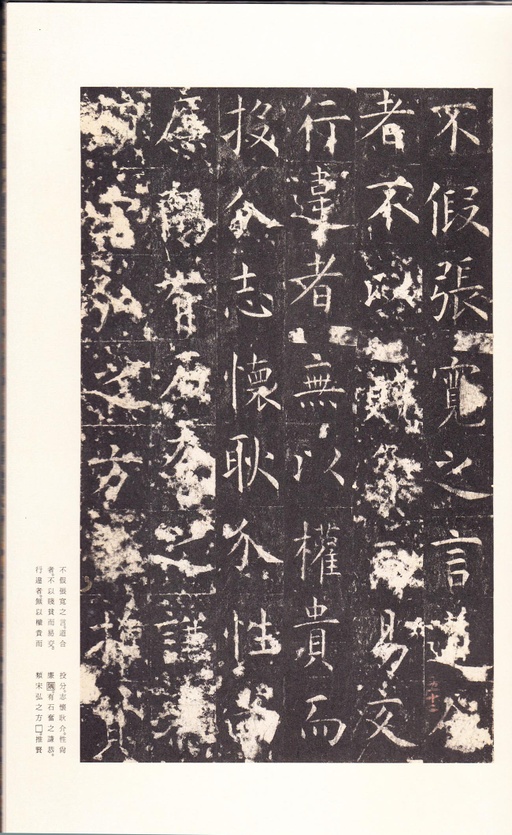 不假張寬之言道合
者不以賤貧而易交
行違者無以權貴而
投分志懷耿介性尚
廉有石奮之謹
類宋弘之方推賢
不假張寬之言。道合
者。不以賤貧而易交。
行違者。無以權貴而
投分。志懷耿介。性尚
廉有石奮之謹恭。
類宋弘之方□。推賢